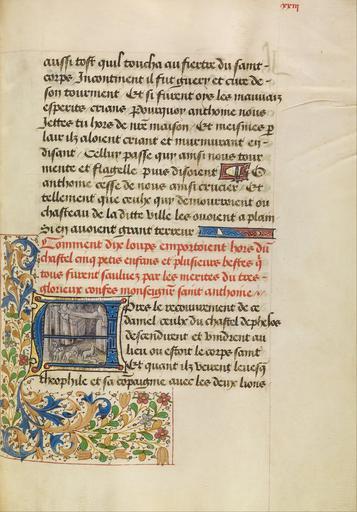 xxiij
aussi tost quil toucha au fiertre du saint
corps Incontinent il fut guery et cure de
son tourment Et si furent oys les mauuaiz
esperits crians Pourquoy anthome nous
Jettes tu hors de nre maison Et meismes p
lair ilz aloient criant et murmurant en
disant Celluy passe qui ainsi nous tour
mente et flagelle puis disoient O
anthome cesse de nous ainsi crucier Et
tellement que ceulx qui demouroient ou
chasteau de la ditte ville les ouoient a plain
Si en auoient grant terreur
Comment dix loups emportoient hors du
chastel cinq petis enfans et plusieurs bestes q
tous furent sauluez par les merites du tres
glorieux confes monseignr saint anthome
Apres le recouurement de ce
daniel ceulx du chastel dephelos
descendirent et vindrent au
lieu ou estoit le corps saint
Et quant ilz veirent leuesq
theophile et sa compaignie auec les deux lions